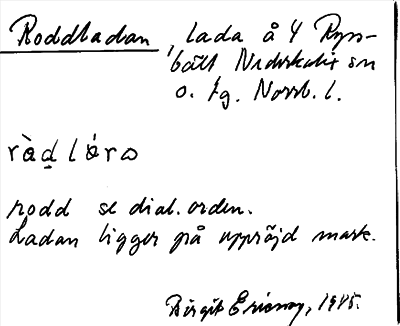 Roddladan, lada å 4 Ryss-
bält Nederkalix sn
o. tg. Norrb. l.
ròḍ lárɷ
rodd se dial. orden.
Ladan ligger på uppröjd mark.
Birgit Ericson, 1945.